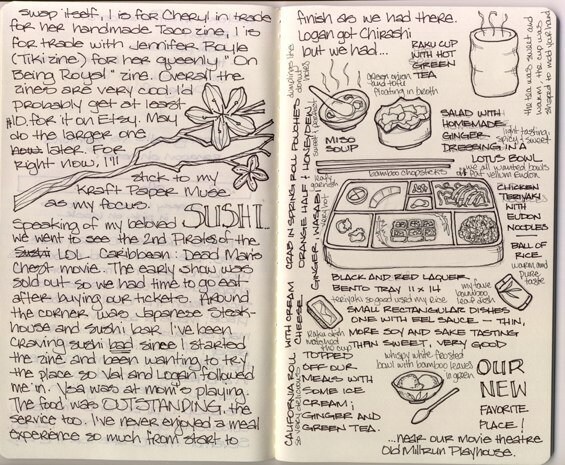 swap itself, 1 is for Cheryl in trade
for her handmade Taco zine, 1 is
for trade with Jennifer Royle
(Tiki zine) for her queenly "On
Being Royal" zine. Overall the
zines are very cool. I'd
probably get at least
$10. for it on Etsy. May
do the larger one
now later. For
right now, I'll
stick to my
Kraft Paper Muse
as my focus.
SUSHI...
Speaking of my beloved
we went to see the 2nd Pirates of the
Sushi LOL Caribbean: Dead Man's
Chest movie. The early show was
sold out so we had time to go eat
after buying our tickets. Around
the corner was Japanese Steak-
house and sushi bar. I've been
craving sushi bad since I started
the zine and been wanting to try
the place so Val and Logan followed
me in. Ysa was at mom's playing.
The food was OUTSTANDING, the
service too. I've never enjoyed a meal
experience so much from start to
finish as we had there.
Logan got Chirashi
but we had...
RAKU CUP
WITH HOT
GREEN
TEA
the tea was sweet and
warm - the cup was
shaped to mold your hand
green onion
and tofu
floating in broth
MISO
SOUP
SALAD WITH
HOMEMADE
GINGER
DRESSING IN A
LOTUS BOWL
light tasting,
spicy & sweet
we all wanted bowls
bamboo chopsticks
CRAB IN SPRING ROLL POUCHES
ORANGE HALF & HONEYDEW
sweet & juicy
GINGER, WASABI
leafy
garnish
very hot
CHICKEN
TERIYAKI
WITH
EUDON
NOODLES
BALL OF
RICE
warm and
pure
taste
BLACK AND RED LAQUER
BENTO TRAY 11 x 14
teriyaki so good used my rice
SMALL RECTANGULAR DISHES
ONE WITH EEL SAUCE - THIN,
MORE SOY AND SAKE TASTING
THAN SWEET, VERY GOOD
my fave
bamboo
leaf dish
Raku dish
matched
the cup
CALIFORNIA ROLL WITH CREAM
CHEESE
so very delicious
TOPPED
OFF OUR
MEALS WITH
SOME ICE
CREAM;
GINGER AND
GREEN TEA.
whispy white frosted
bowl with bamboo leaves
in green
OUR
NEW
FAVORITE
PLACE!
...near our movie theatre
Old Millrun Playhouse.